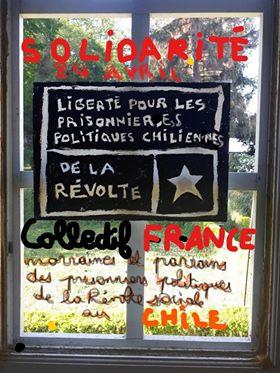 SOLIDARITÉ
24 AVRIL
LIBERTÉ POUR LES
PRISONNIER.ES
POLITIQUES CHILIEN·NES
DE LA
RÉVOLTE
Collectif FRANCE
marraines et parrains
des prisonniers politiques
de la Révolte social
au CHILE